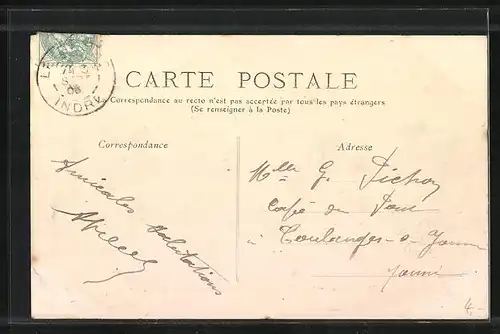 CARTE POSTALE
La Correspondance au recto n'est pas acceptée par tous les pays étrangers
(Se renseigner à la Poste)
Correspondance
Amicales salutations
Adresse
Mlle G. Pichon
Café du
à Coulanges-s-Yonne
Yonne
INDRE
4.-